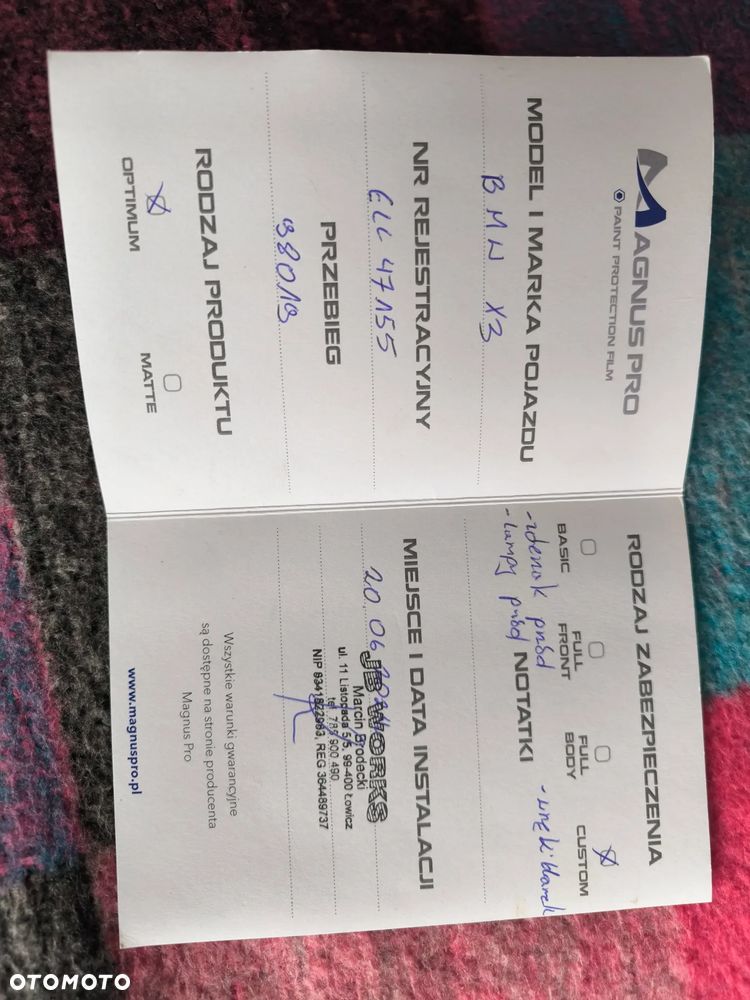 MAGNUS PRO
PAINT PROTECTION FILM
MODEL I MARKA POJAZDU
BMW X3
NR REJESTRACYJNY
ELC 47155
PRZEBIEG
98019
RODZAJ PRODUKTU
OPTIMUM
MATTE
RODZAJ ZABEZPIECZENIA
BASIC
FULL FRONT
FULL BODY
CUSTOM
- zderzak przód
- wnęki klamek
- lampy przód
NOTATKI
MIEJSCE I DATA INSTALACJI
20.06.
JB WORKS
Marcin Brodecki
ul. 11 Listopada 5/5, 99-400 Łowicz
tel. 785 900 490
NIP 8341822963, REG 364489737
Wszystkie warunki gwarancyjne
są dostępne na stronie producenta
Magnus Pro
www.magnuspro.pl
OTOMOTO